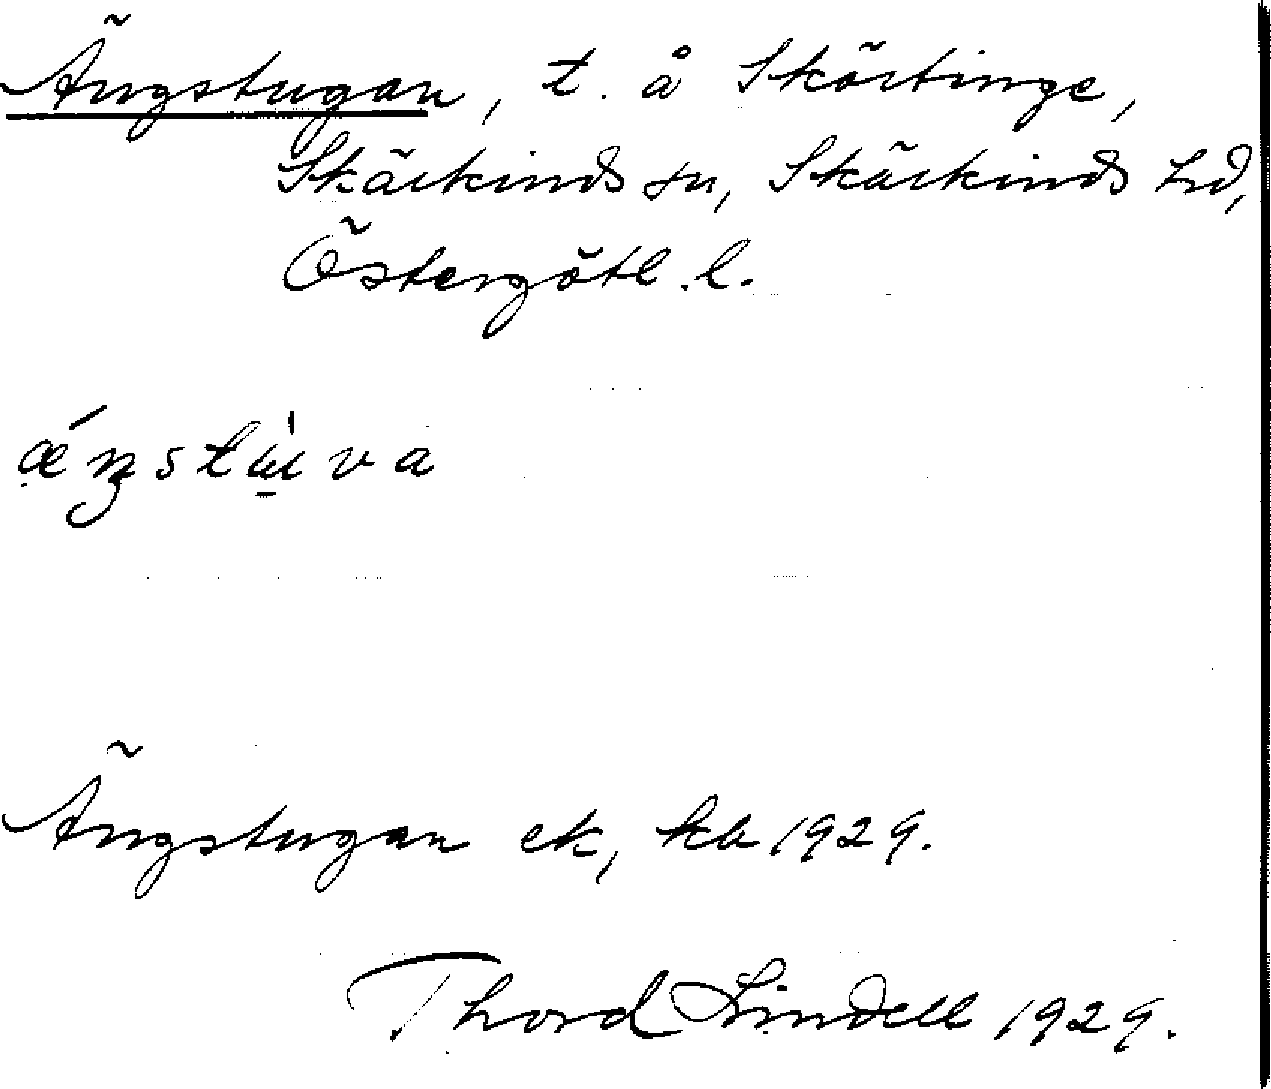 Ängstugan, t. å Skörtinge,
Skärkinds sn, Skärkinds hd,
Östergötl. l.
Ängstugan ek, kb 1929.
Thord Lindell 1929.